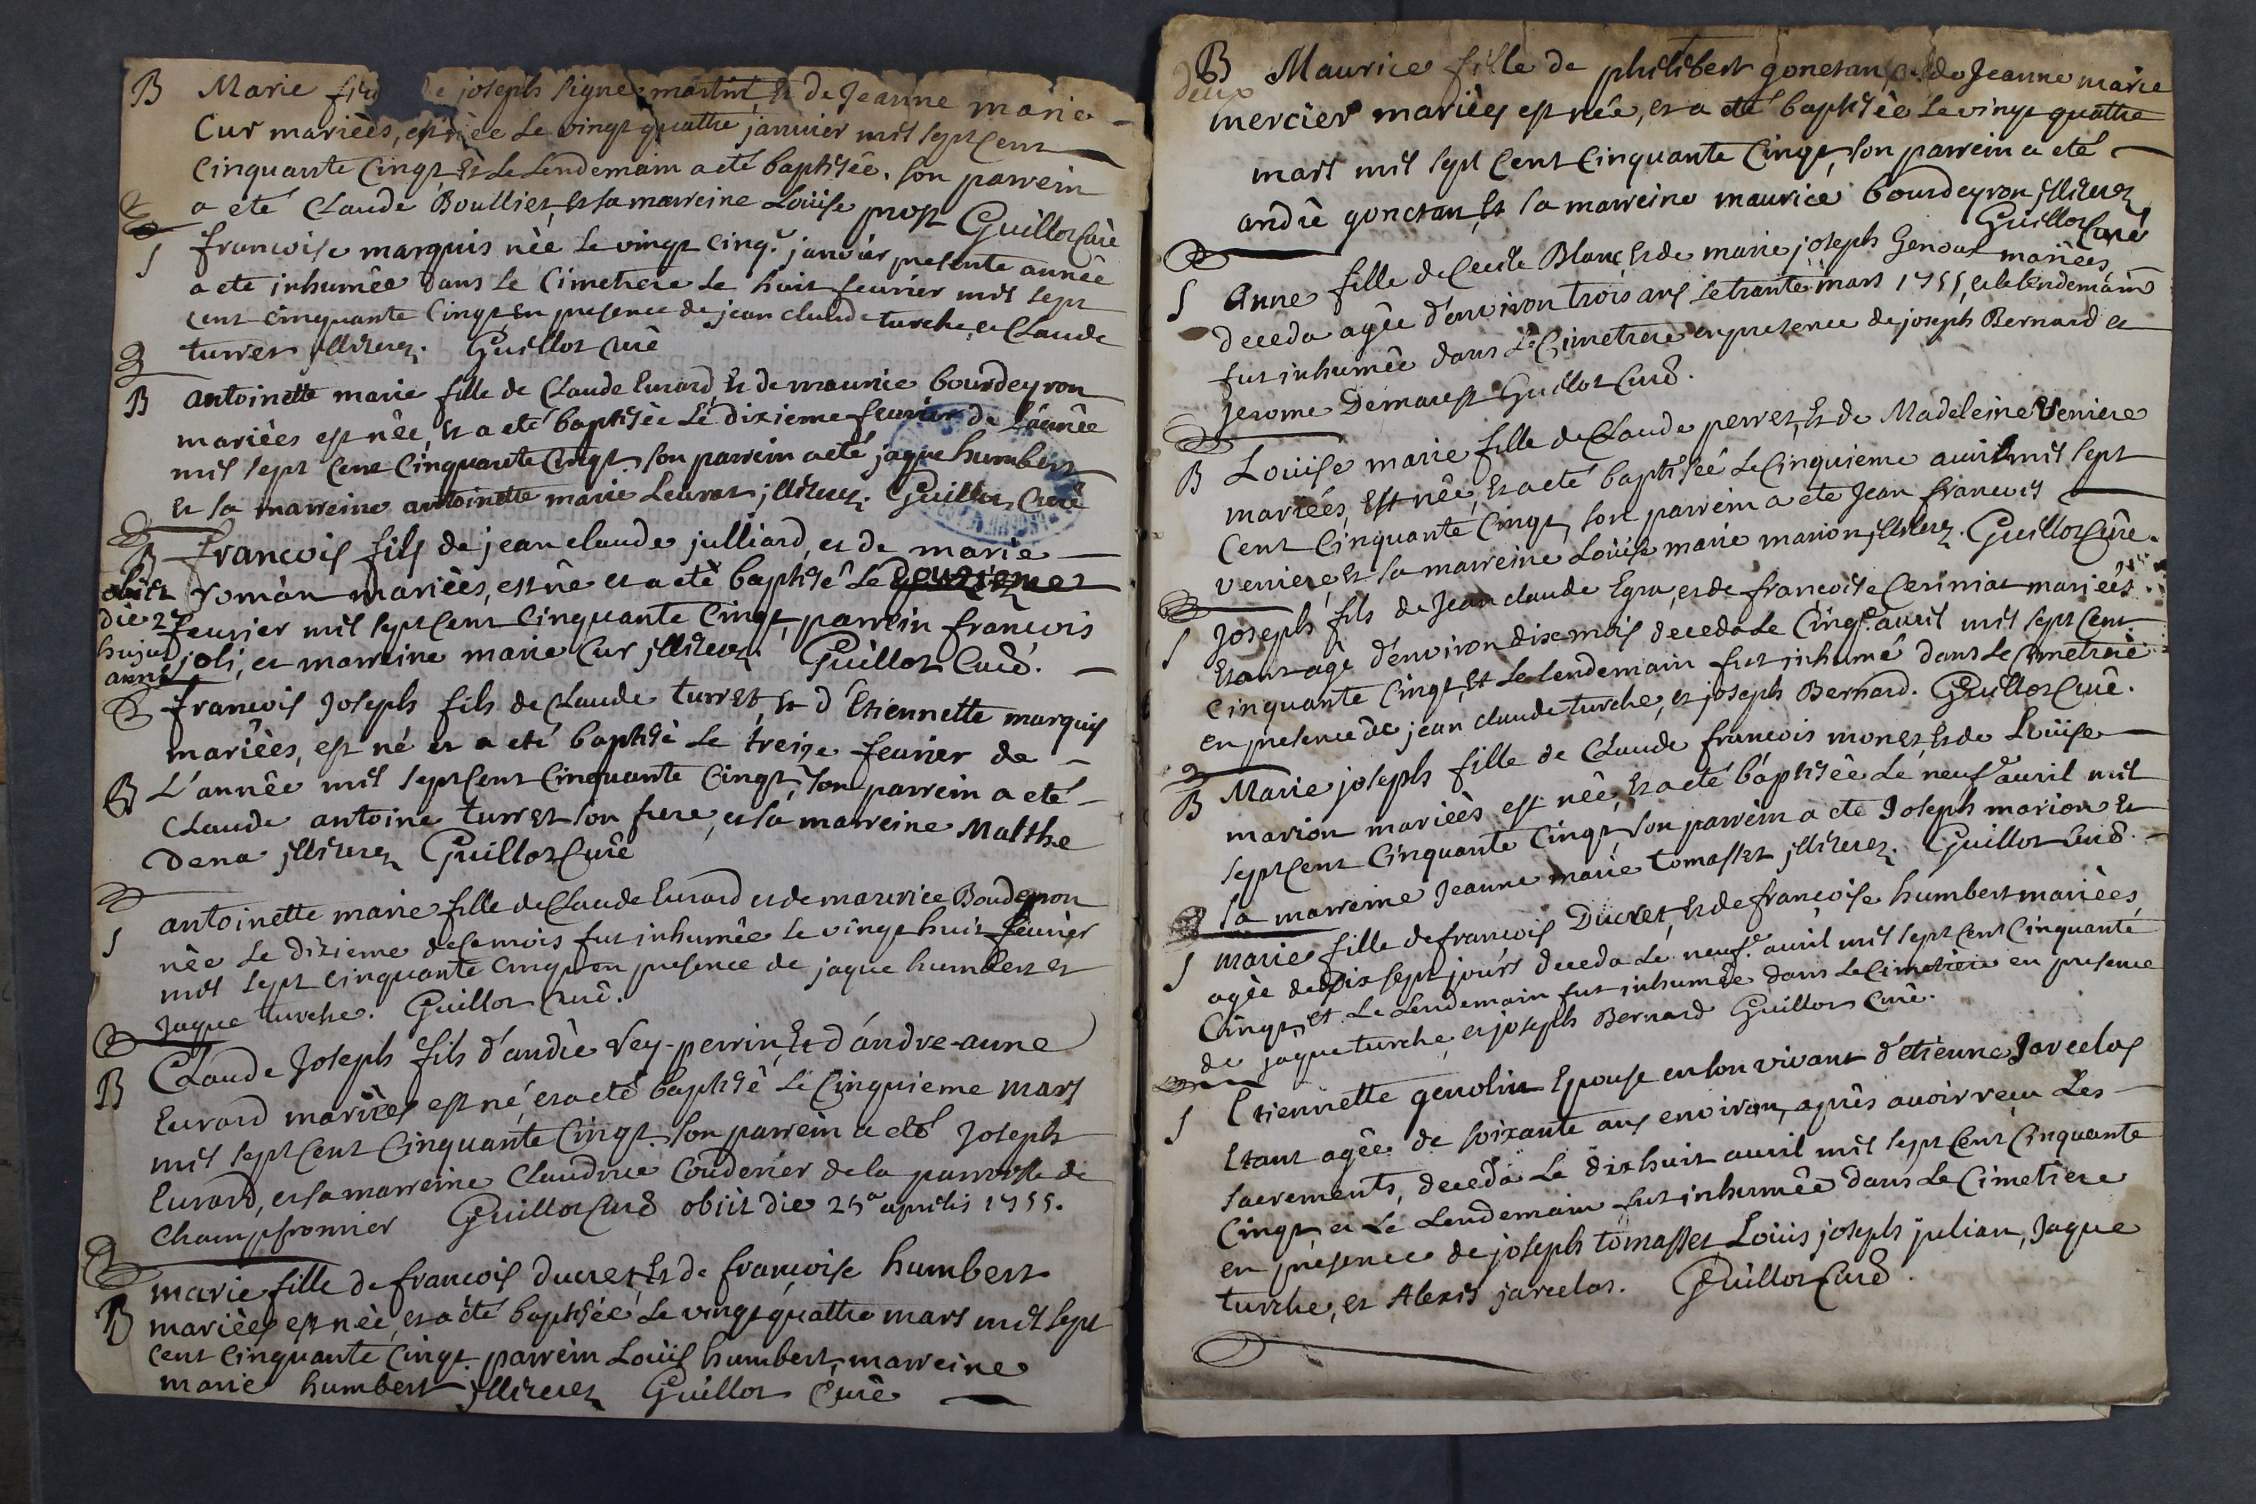 B Marie joseph signe martin, et de Jeanne marie
Cur mariées, est née le vingt quattre janvier mil sept cent
cinquante cinqt, et le lendemain a été baptisée. son parrein
a eté Claude Boullier, et sa marreine Loüise prost Guillot Curé
S francoise marquis née le vingt cinq.e janvier presente année
a eté inhumée dans le cimetiere le huit fevrier mil sept
cent cinquante cinqt en presence de jean claude turche et Claude
turret illiterez. Guillot Curé
B antoinette marie fille de Claude Evrard, et de maurice bourdeyron
mariées est née, et a eté baptisée le dixieme fevrier de l'année
mil sept cent cinquante cinqt. son parrein a eté jaque humbert
et sa marreine antoinette marie Levrat illiterez. Guillot Curé
B francois fils de jean claude julliard, et de marie
obiit román mariées, est né et a eté baptisé le
die 27 fevrier mil sept cent cinquante cinqt, parrein francois
hujus joli, et marreine marie Cur illiterez. Guillot Curé.
anni
francois Joseph fils de Claude turret, et d'Etiennette marquis
mariées, est né et a eté baptisé le treize fevrier de
B L'année mil sept cent cinquante cinqt, son parrein a eté
Claude antoine turret son frere, et sa marreine Malthe
Dena illiterez Guillot Curé
S antoinette marie fille de Claude Evrard et de maurice Bourdeyron
née le dixieme de ce mois fut inhumée le vingt huit fevrier
mil sept cinquante cinqt en presence de jaque humbert et
Jaque turche. Guillot Curé.
B Claude Joseph fils d'andré Vey-perrin, et d'andre-anne
Evrard mariées est né, et a eté baptisé le cinquieme mars
mil sept cent cinquante cinqt. son parrein a eté Joseph
Evrard, et sa marreine Claudine Couderier de la parroisse de
Champfromier Guillot Curé obiit die 25a aprilis 1755.
B marie fille de francois ducret, et de francoise humbert
mariées est née, et a été baptisée le vingt quattre mars mil sept
cent cinquante cinqt. parrein Loüis humbert, marreine
marie humbert illiterez Guillot Curé
B Maurice fille de philibert gonetan, et de Jeanne marie
deux
mercier mariées est née, et a eté baptisée le vingt quattre
mars mil sept cent cinquante cinqt, son parrein a eté
andré gonetan, et sa marreine maurice bourdeyron illiterez
Guillot Curé
S Anne fille de Cecile Blanc, et de marie joseph Genoux mariées
deceda agée d'environ trois ans le trante mars 1755, et le lendemain
fut inhumée dans le Cimetiere en presence de joseph Bernard et
jerome Demarest Guillot Curé.
B Loüise marie fille de Claude perret, et de Madeleine Verriere
mariées, est née, et a eté baptisée le cinquieme avril mil sept
cent cinquante cinqt, son parrein a eté Jean francois
verriere, et sa marreine Loüise marie marion illiterez. Guillot Curé.
S Joseph fils de Jean claude Egra, et de francoise Ceriniat mariées
etant agé d'environ dix mois deceda le cinq.e avril mil sept cent
cinquante cinqt, et le lendemain fut inhumé dans le Cimetiere
en presence de jean claude turche, et joseph Bernard. Guillot Curé.
B Marie joseph fille de Claude francois monet, et de Loüise
marion mariées est née, et a eté baptisée le neuf.e avril mil
sept cent cinquante cinqt, son parrein a eté Joseph marion et
sa marreine Jeanne marie tomasset illiterez. Guillot Curé.
S marie fille de francois Ducret, et de françoise humbert mariées,
agée de dix sept jours deceda le neuf.e avril mil sept cent cinquante
Cinqt, et le Lendemain fut inhumée dans le Cimetiere en presence
de jaque turche, et joseph Bernard Guillot Curé.
S Etiennette genolin Epouse en son vivant d'etienne Jarcelot
etant agée de soixante ans environ, après avoir reçu les
sacrements, deceda le dix huit avril mil sept cent cinquante
cinqt, et le lendemain fut inhumée dans le Cimetiere
en présence de joseph tomasset, Loüis joseph julian, Jaque
turche, et Alexis jarcelot. Guillot Curé.